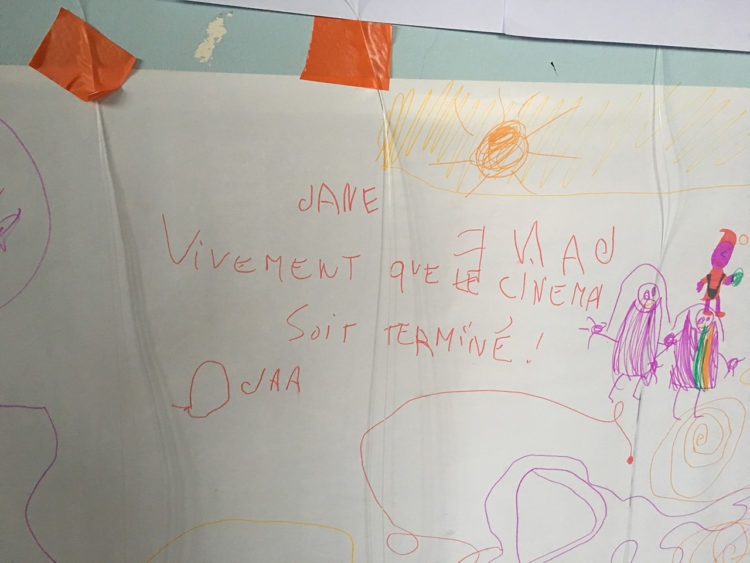 JANE
ƎИAJ
VIVEMENT QUE LE CINEMA
SOIT TERMINÉ !
JAA